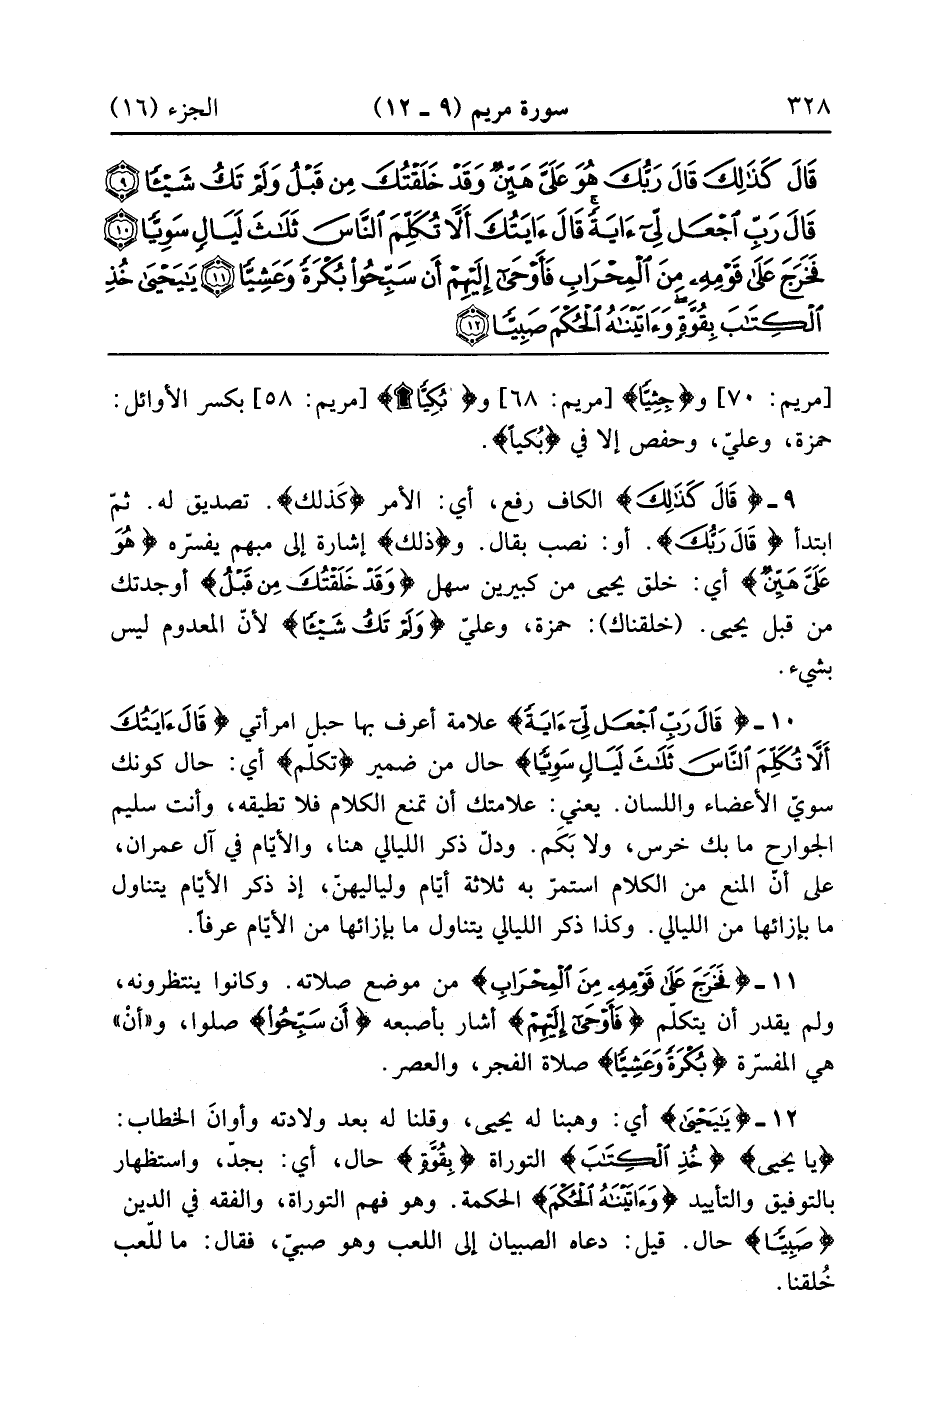 ٣٢٨ سورة مريم (٩ ـ ١٢) الجزء (١٦)
قَالَ كَذَٰلِكَ قَالَ رَبُّكَ هُوَ عَلَىَّ هَيِّنٌ وَقَدْ خَلَقْتُكَ مِن قَبْلُ وَلَمْ تَكُ شَيْـًٔا ٩
قَالَ رَبِّ ٱجْعَل لِّىٓ ءَايَةً قَالَ ءَايَتُكَ أَلَّا تُكَلِّمَ ٱلنَّاسَ ثَلَٰثَ لَيَالٍ سَوِيًّا ١٠
فَخَرَجَ عَلَىٰ قَوْمِهِۦ مِنَ ٱلْمِحْرَابِ فَأَوْحَىٰٓ إِلَيْهِمْ أَن سَبِّحُوا۟ بُكْرَةً وَعَشِيًّا ١١ يَٰيَحْيَىٰ خُذِ
ٱلْكِتَٰبَ بِقُوَّةٍ وَءَاتَيْنَٰهُ ٱلْحُكْمَ صَبِيًّا ١٢
[مريم: ٧٠] و﴿جِثِيًّا﴾ [مريم: ٦٨] و﴿بُكِيًّا۩﴾ [مريم: ٥٨] بكسر الأوائل:
حمزة، وعليّ، وحفص إلا في ﴿بُكياً﴾.
٩ ـ ﴿قَالَ كَذَٰلِكَ﴾ الكاف رفع، أي: الأمر ﴿كَذلك﴾. تصديق له. ثمّ
ابتدأ ﴿قَالَ رَبُّكَ﴾. أو: نصب بقال. و﴿ذلك﴾ إشارة إلى مبهم يفسّره ﴿هُوَ
عَلَىَّ هَيِّنٌ﴾ أي: خلق يحيى من كبيرين سهل ﴿وَقَدْ خَلَقْتُكَ مِن قَبْلُ﴾ أوجدتك
من قبل يحيى. (خلقناك): حمزة، وعليّ ﴿وَلَمْ تَكُ شَيْـًٔا﴾ لأنّ المعدوم ليس
بشيء.
١٠ ـ ﴿قَالَ رَبِّ ٱجْعَل لِّىٓ ءَايَةً﴾ علامة أعرف بها حبل امرأتي ﴿قَالَ ءَايَتُكَ
أَلَّا تُكَلِّمَ ٱلنَّاسَ ثَلَٰثَ لَيَالٍ سَوِيًّا﴾ حال من ضمير ﴿تكلّم﴾ أي: حال كونك
سويّ الأعضاء واللسان. يعني: علامتك أن تمنع الكلام فلا تطيقه، وأنت سليم
الجوارح ما بك خرس، ولا بَكَم. ودلّ ذكر الليالي هنا، والأيّام في آل عمران،
على أنّ المنع من الكلام استمرّ به ثلاثة أيّام ولياليهنّ، إذ ذكر الأيّام يتناول
ما بإزائها من الليالي. وكذا ذكر الليالي يتناول ما بإزائها من الأيّام عرفاً.
١١ ـ ﴿فَخَرَجَ عَلَىٰ قَوْمِهِۦ مِنَ ٱلْمِحْرَابِ﴾ من موضع صلاته. وكانوا ينتظرونه،
ولم يقدر أن يتكلّم ﴿فَأَوْحَىٰٓ إِلَيْهِمْ﴾ أشار بأصبعه ﴿أَن سَبِّحُوا۟﴾ صلوا، و«أنْ»
هي المفسّرة ﴿بُكْرَةً وَعَشِيًّا﴾ صلاة الفجر، والعصر.
١٢ ـ ﴿يَٰيَحْيَىٰ﴾ أي: وهبنا له يحيى، وقلنا له بعد ولادته وأوانَ الخطاب:
﴿يا يحيى﴾ ﴿خُذِ ٱلْكِتَٰبَ﴾ التوراة ﴿بِقُوَّةٍ﴾ حال، أي: بجدّ، واستظهار
بالتوفيق والتأييد ﴿وَءَاتَيْنَٰهُ ٱلْحُكْمَ﴾ الحكمة. وهو فهم التوراة، والفقه في الدين
﴿صَبِيًّا﴾ حال. قيل: دعاه الصبيان إلى اللعب وهو صبيّ، فقال: ما للّعب
خُلقنا.